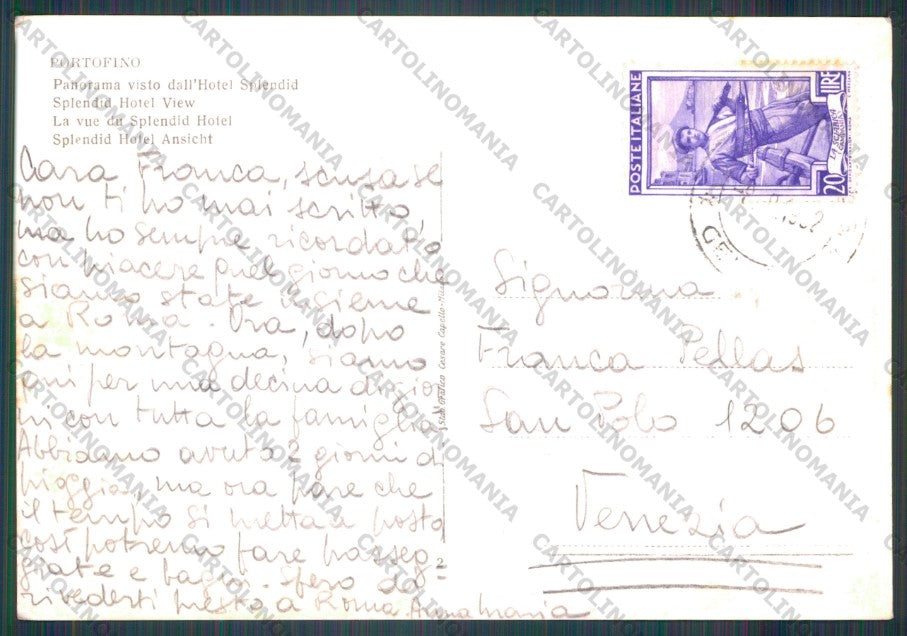 PORTOFINO
Panorama visto dall'Hotel Splendid
Splendid Hotel View
La vue du Splendid Hotel
Splendid Hotel Ansicht
Cara Franca, scusa se
non ti ho mai scritto,
ma ho sempre ricordato
con piacere quel giorno che
siamo state insieme
a Roma. Ora, dopo
la montagna, siamo
qui per una decina di gior
ni con tutta la famiglia.
Abbiamo avuto 2 giorni di
pioggia, ma ora pare che
il tempo si metta a posto
così potremo fare passeg=
giate e bagni. Spero di
rivederti presto a Roma Annamaria
Stab. Grafico Cesare Capello
POSTE ITALIANE
LIRE
20
LA SCIABICA
CAMPANIA
1952
GE
Signorina
Franca Pellas
San Polo 1206
Venezia
CARTOLINOMANIA